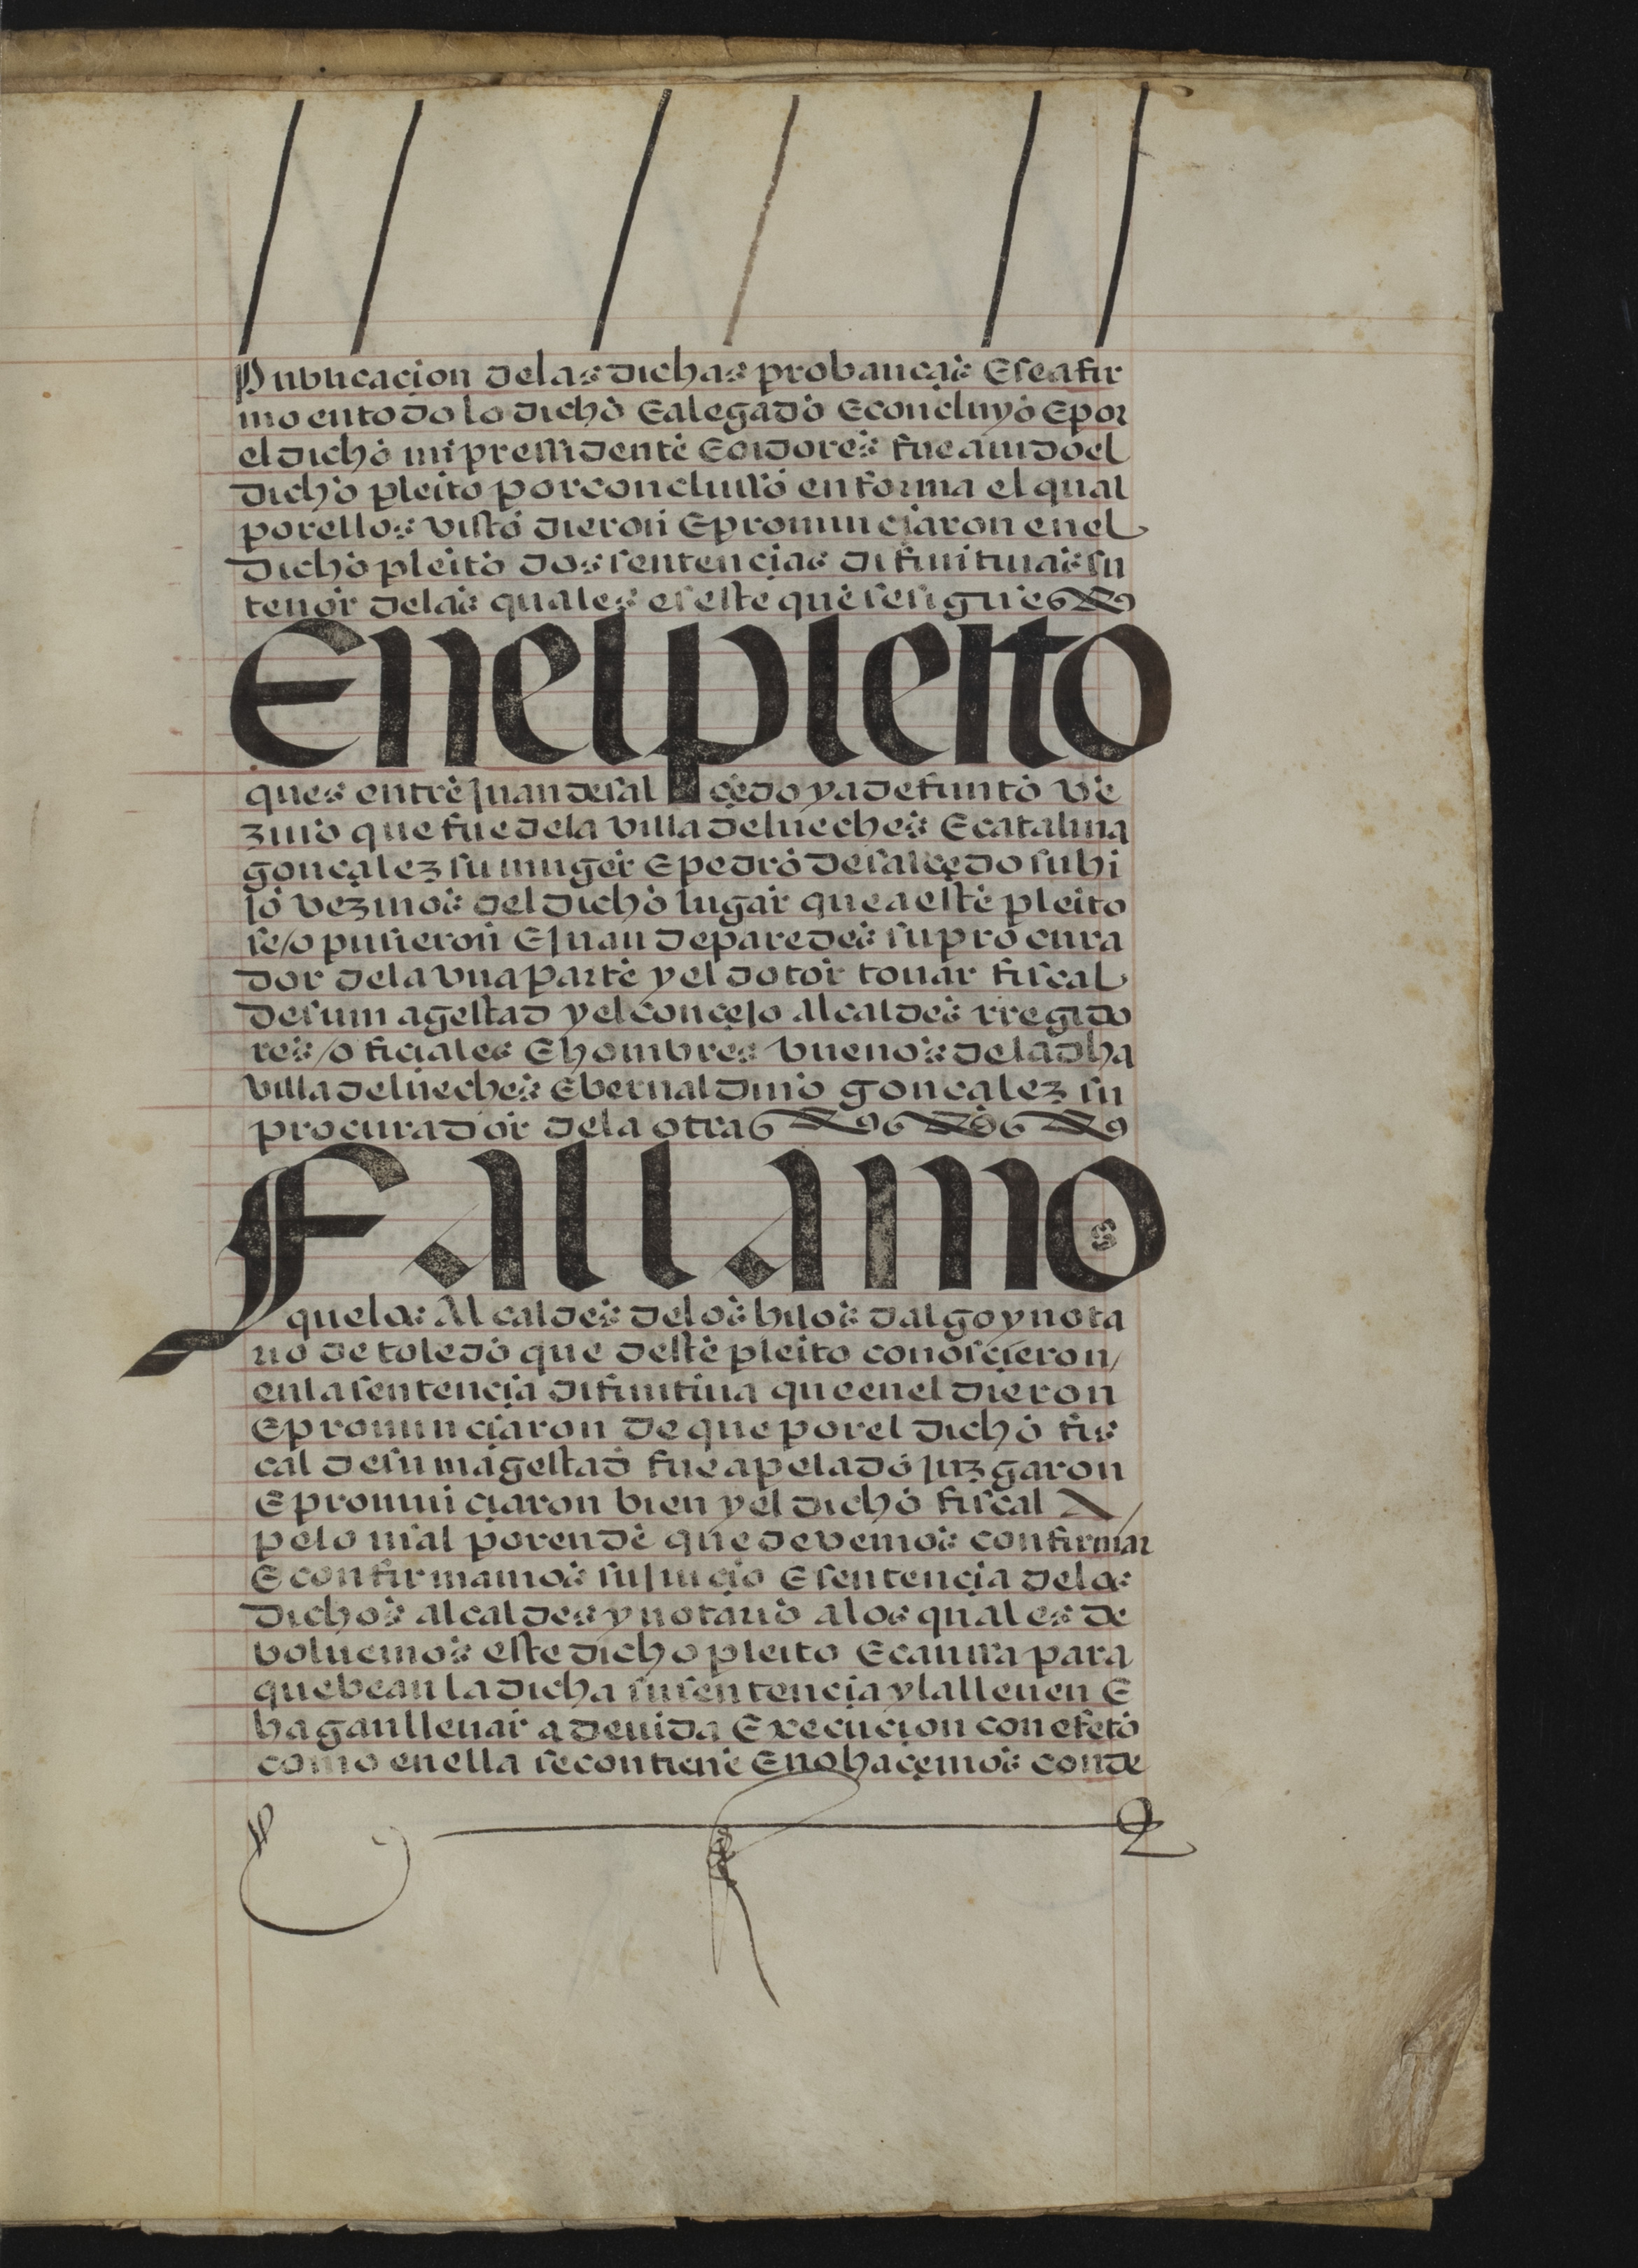 Publicaçion delas dichas probanças E se afir
mo en todo lo dicho E alegado E concluyo E por
el dicho mi pressidente E oidores fue auido el
dicho pleito por conclusso en forma el qual
por ellos visto dieron E pronunçiaron en el
dicho pleito dos sentençias difinitiuas su
tenor delas quales es este que se sigue
En el pleito
que es entre Juan de salçedo ya defunto ve
zino que fue dela villa de lueches E catalina
gonçalez su muger E pedro de salçedo su hi
jo vezinos del dicho lugar que a este pleito
se/o pusieron E Juan de paredes su procura
dor dela vna parte y el dotor touar fiscal
de su magestad y el conçejo alcaldes rregido
res/o fiçiales E hombres buenos dela dha
villa de lueches E bernaldino gonçalez su
procurador dela otra
Fallamos
que los Alcaldes delos hijos dalgo y nota
rio de toledo que deste pleito conosçieron/
en la sentençia difinitiua que en el dieron
E pronunçiaron de que por el dicho fis
cal de su magestad fue apelado Juzgaron
E pronunçiaron bien y el dicho fiscal A/
pelo mal por ende que devemos confirmar
E confirmamos su Juiçio E sentençia delos
dichos alcaldes y notario a los quales de
boluemos este dicho pleito E caussa para
que bean la dicha su sentençia y la lleuen E
hagan lleuar a deuida Execuçion con efeto
como en ella se contiene E no haçemos conde